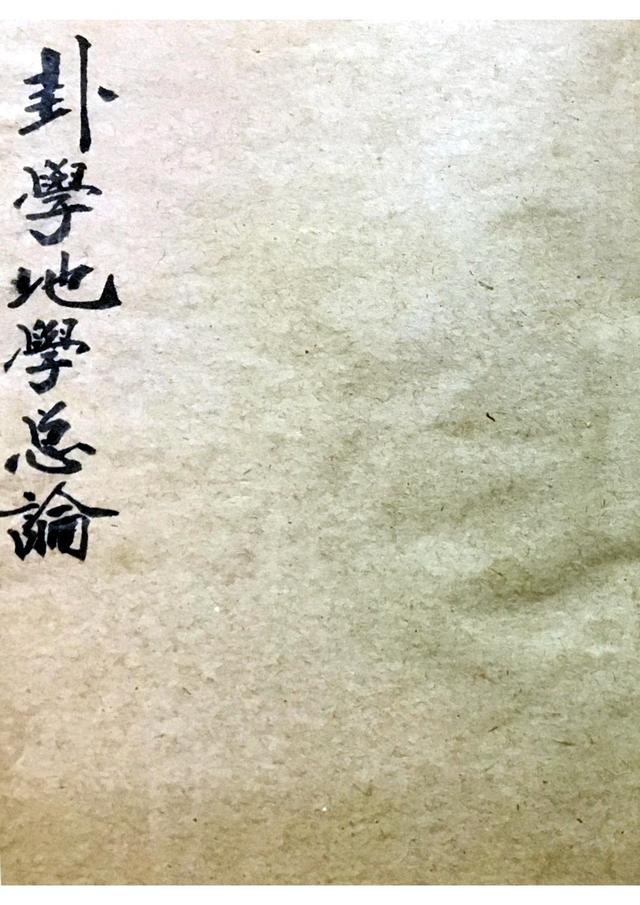 卦學地學总論